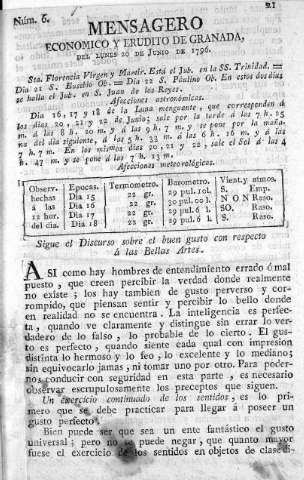 Núm. 6. 21
MENSAGERO
ECONOMICO Y ERUDITO DE GRANADA,
DEL LUNES 20 DE JUNIO DE 1796.
Sta. Florencia Virgen y Martir. Está el Jub. en la SS. Trinidad. =
Dia 21 S. Eusebio Ob. = Dia 22 S. Paulino Ob. En estos dos dias
se halla el Jub. en S. Juan de los Reyes.
Afecciones astronómicas.
Dia 16, 17 y 18 de la Luna menguante, que corresponden á
los dias, 20, 21 y 22 de Junio; sale por la tarde á las 7 h. 15
m. á las 8 h. 20 m. y á las 9 h. 7 m. y se pone por la maña-
na del dia siguiente, á las 5 h. 33 m. á las 6 h. 16 m. y á las
7 h. 7 m. En los mismos dias 20, 21 y 22, sale el Sol á las 4
h. 47 m. y se pone á las 7 h. 13 m.
Afecciones meteorológicas.
Observ. Epocas. Termometro. Barometro. Vient. y atmos.
hechas Dia 15 22 gr. 29 pul. 10 l. S. Emp.
á las Dia 16 22 gr. 30 pul. 00 l. N O N Raso.
12 hor. Dia 17 22 gr. 29 pul. 6 l. SO. Raso.
del dia. Dia 18 22 gr. 29 pul. 6 l. S. Raso.
Sigue el Discurso sobre el buen gusto con respecto
á las Bellas Artes.
ASI como hay hombres de entendimiento errado ó mal
puesto, que creen percibir la verdad donde realmente
no existe; los hay tambien de gusto perverso y cor-
rompido, que piensan sentir y percibir lo bello donde
en realidad no se encuentra. La inteligencia es perfec-
ta, quando ve claramente y distingue sin errar lo ver-
dadero de lo falso, lo probable de lo cierto. El gus-
to es perfecto, quando siente cada qual con impresion
distinta lo hermoso y lo feo, lo excelente y lo mediano;
sin equivocarlo jamas, ni tomar uno por otro. Para poder-
nos conducir con seguridad en esta parte, es necesario
observar escrupulosamente los preceptos que siguen.
Un exercicio continuado de los sentidos, es lo pri-
mero que se debe practicar para llegar á poseer un
gusto perfecto.
Bien puede ser que sea un ente fantástico el gusto
universal; pero no se puede negar, que quanto mayor
fuese el exercicio de los sentidos en objetos de clase di-